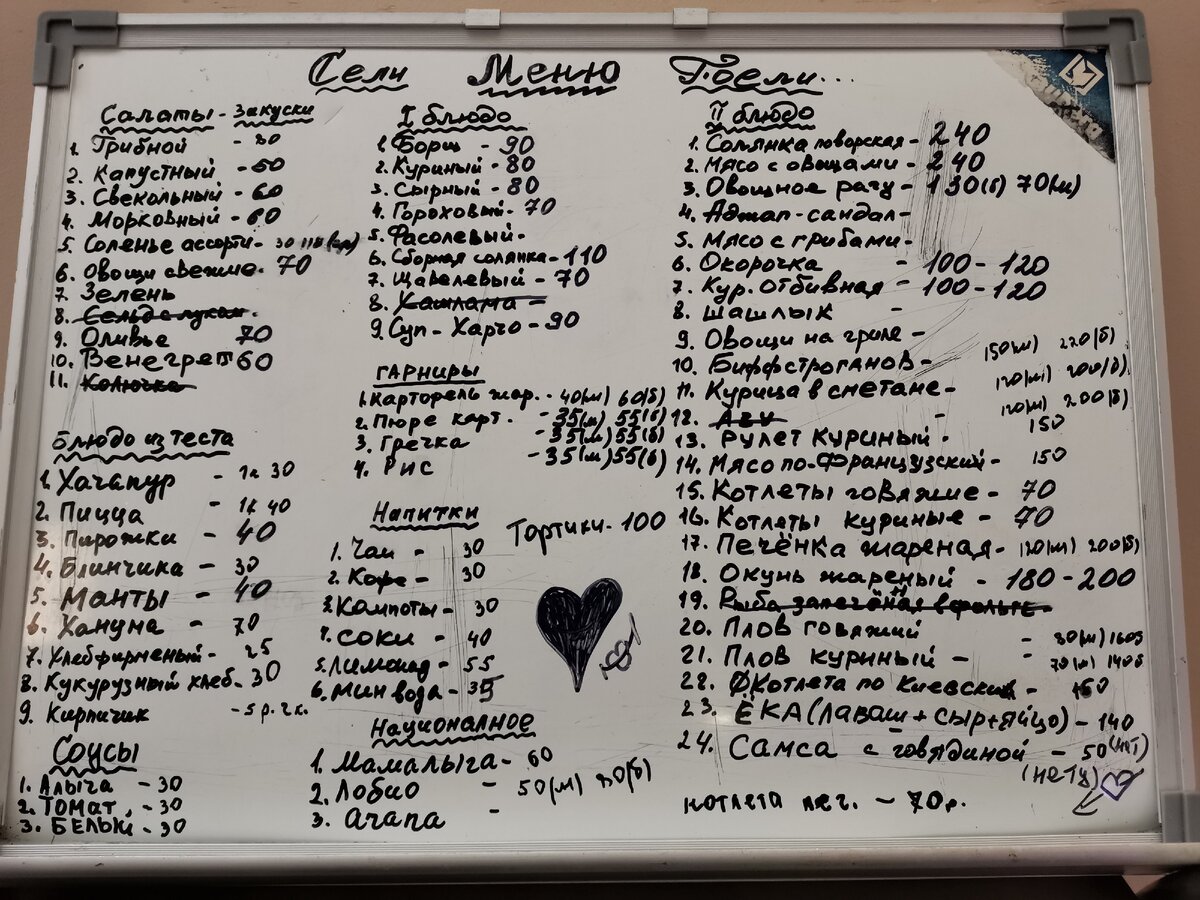 Сели Меню Поели...
Салаты - Закуски
1. Грибной - 80
2. Капустный - 50
3. Свекольный - 60
4. Морковный - 60
5. Соленье ассорти - 30
6. Овощи свежие - 70
7. Зелень
8. Сельдь с луком -
9. Оливье 70
10. Венегрет 60
11. Колючка
Блюдо из теста
1. Хачапур - 1к 30
2. Пицца - 1к 40
3. Пирожки - 40
4. Блинчика - 30
5. Манты - 40
6. Ханума - 70
7. Хлеб фирменый - 25
8. Кукурузный хлеб - 30
9. Кирпичик - 5 р. 2 к.
Соусы
1. Алыча - 30
2. Томат - 30
3. Белый - 30
I блюдо
1. Борщ - 90
2. Куриный - 80
3. Сырный - 80
4. Гороховый - 70
5. Фасолевый -
6. Сборная солянка - 110
7. Щавелевый - 70
8. Хашлама -
9. Суп - Харчо - 90
Гарниры
1. Карторель жар. - 40(м) 60(б)
2. Пюре карт. - 35(м) 55(б)
3. Гречка - 35(м) 55(б)
4. Рис - 35(м) 55(б)
Напитки
1. Чаи - 30
2. Кофе - 30
3. Компоты - 30
4. Соки - 40
5. Лимонад - 55
6. Мин вода - 35
Тортики - 100
Националное
1. Мамалыга - 60
2. Лобио - 50(м) 80(б)
3. Ачапа -
II блюдо
1. Солянка поворская - 240
2. Мясо с овощами - 240
3. Овощное рагу - 130(б) 70(м)
4. Аджап-сандал -
5. Мясо с грибами -
6. Окорочка - 100 - 120
7. Кур. Отбивная - 100 - 120
8. Шашлык -
9. Овощи на гриле -
10. Биффстроганов - 150(м) 220(б)
11. Курица в сметане - 120(м) 200(б)
12. Азу - 120(м) 200(б)
13. Рулет куриный - 150
14. Мясо по-Французский - 150
15. Котлеты говяжие - 70
16. Котлеты куриные - 70
17. Печёнка жареная - 120(м) 200(б)
18. Окунь жареный - 180 - 200
19. Рыба запечёная в фольге -
20. Плов говяжий - 80(м) 160б
21. Плов куриный - 70(м) 140б
22. Котлета по Киевски - 150
23. ЁКА (лаваш + сыр + яйцо) - 140
24. Самса с говядиной - 50
(нету)
котлета печ. - 70р.